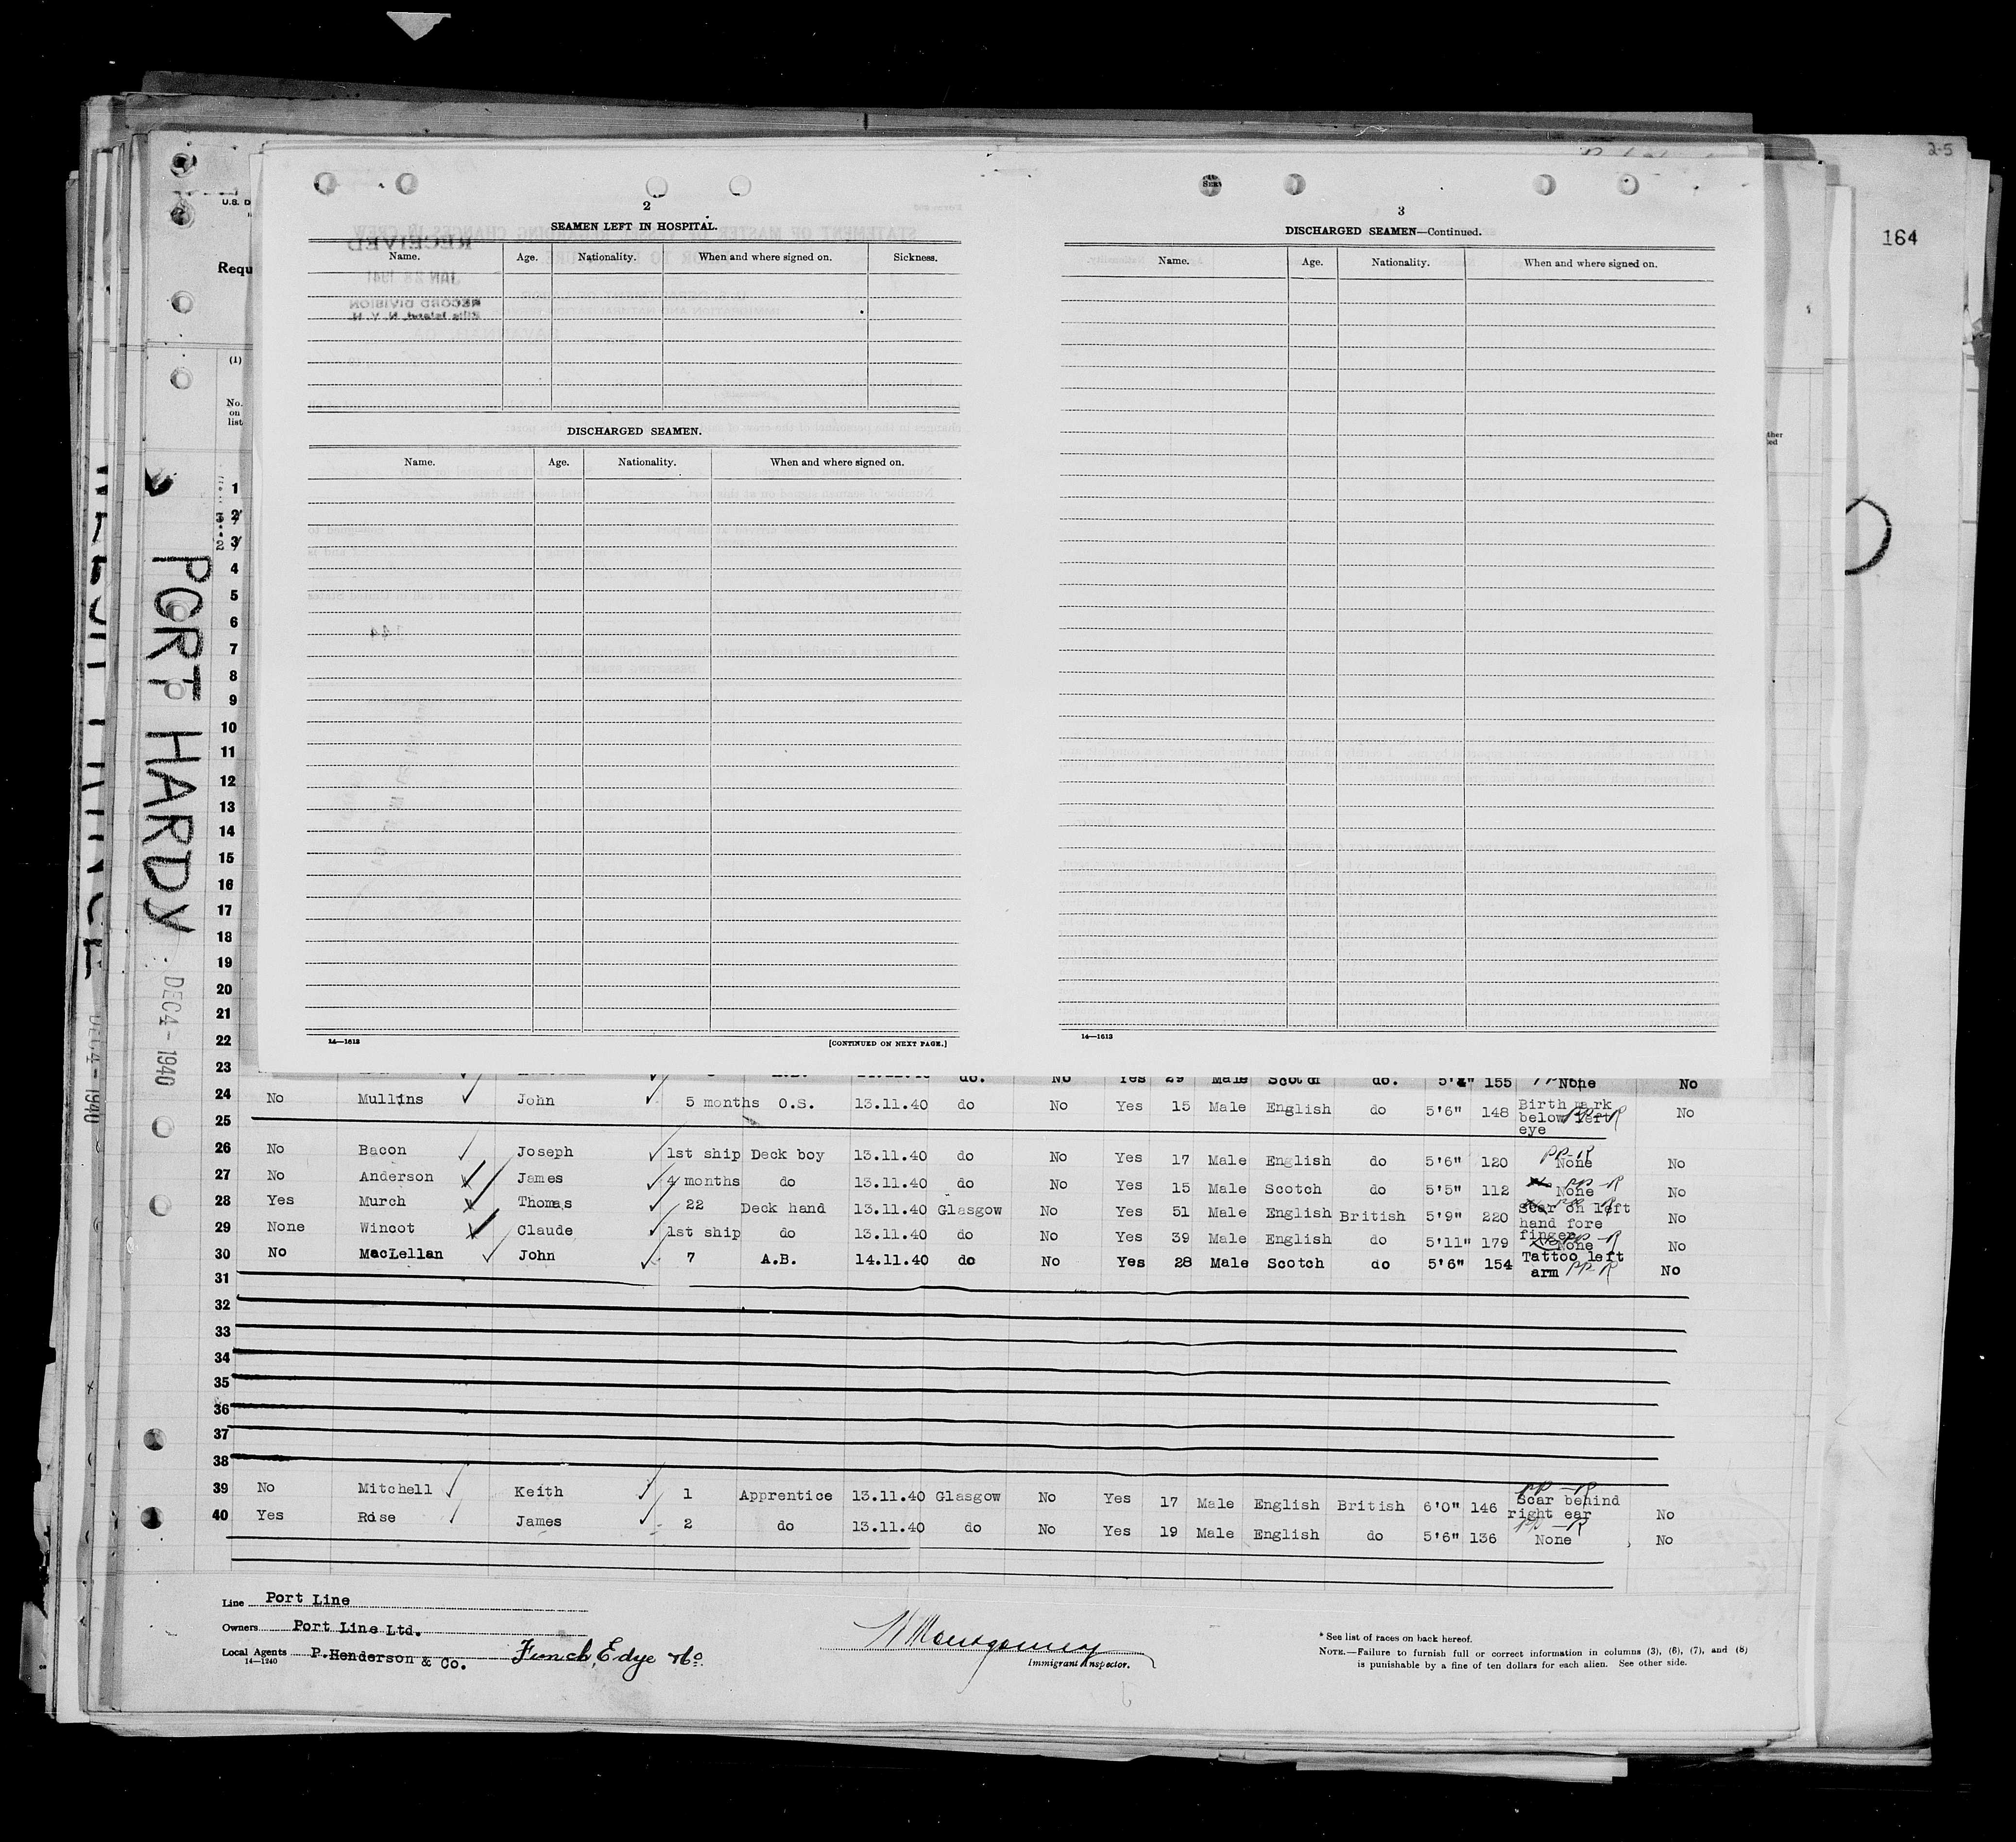 2-5
164
U.S. D
Requ
(1)
No.
on
list
2
SEAMEN LEFT IN HOSPITAL.
Name. Age. Nationality. When and where signed on. Sickness.
DISCHARGED SEAMEN.
Name. Age. Nationality. When and where signed on.
14—1613 [CONTINUED ON NEXT PAGE.]
3
DISCHARGED SEAMEN—Continued.
Name. Age. Nationality. When and where signed on.
14—1613
PORT HARDY
DEC 4 - 1940
DEC 4 - 1940
1
2
3
4
5
6
7
8
9
10
11
12
13
14
15
16
17
18
19
20
21
22
23 do. No Yes 29 Male Scotch do. 155 None No
24 No Mullins John 5 months O.S. 13.11.40 do No Yes 15 Male English do 5'6" 148 Birth mark below left eye PP-R No
25
26 No Bacon Joseph 1st ship Deck boy 13.11.40 do No Yes 17 Male English do 5'6" 120 PP-R None No
27 No Anderson James 4 months do 13.11.40 do No Yes 15 Male Scotch do 5'5" 112 PP-R None No
28 Yes Murch Thomas 22 Deck hand 13.11.40 Glasgow No Yes 51 Male English British 5'9" 220 PP-R Scar on left hand fore finger No
29 None Wincot Claude 1st ship do 13.11.40 do No Yes 39 Male English do 5'11" 179 PP-R None No
30 No MacLellan John 7 A.B. 14.11.40 do No Yes 28 Male Scotch do 5'6" 154 Tattoo left arm PP-R No
31
32
33
34
35
36
37
38
39 No Mitchell Keith 1 Apprentice 13.11.40 Glasgow No Yes 17 Male English British 6'0" 146 PP-R Scar behind right ear No
40 Yes Rose James 2 do 13.11.40 do No Yes 19 Male English do 5'6" 136 PP-R None No
Line Port Line
Owners Port Line Ltd.
Local Agents P. Henderson & Co. Funch, Edye & Co.
14—1240
Montgomery
Immigrant Inspector.
* See list of races on back hereof.
NOTE.—Failure to furnish full or correct information in columns (3), (6), (7), and (8)
is punishable by a fine of ten dollars for each alien. See other side.